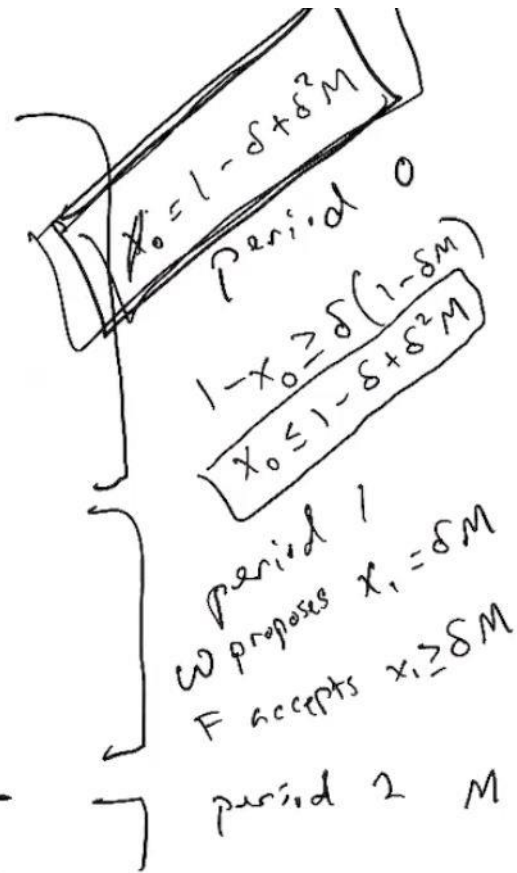 x₀ = 1 - δ + δ²M
period 0
1 - x₀ ≥ δ(1 - δM)
x₀ ≤ 1 - δ + δ²M
period 1
W proposes x₁ = δM
F accepts x₁ ≥ δM
period 2 M